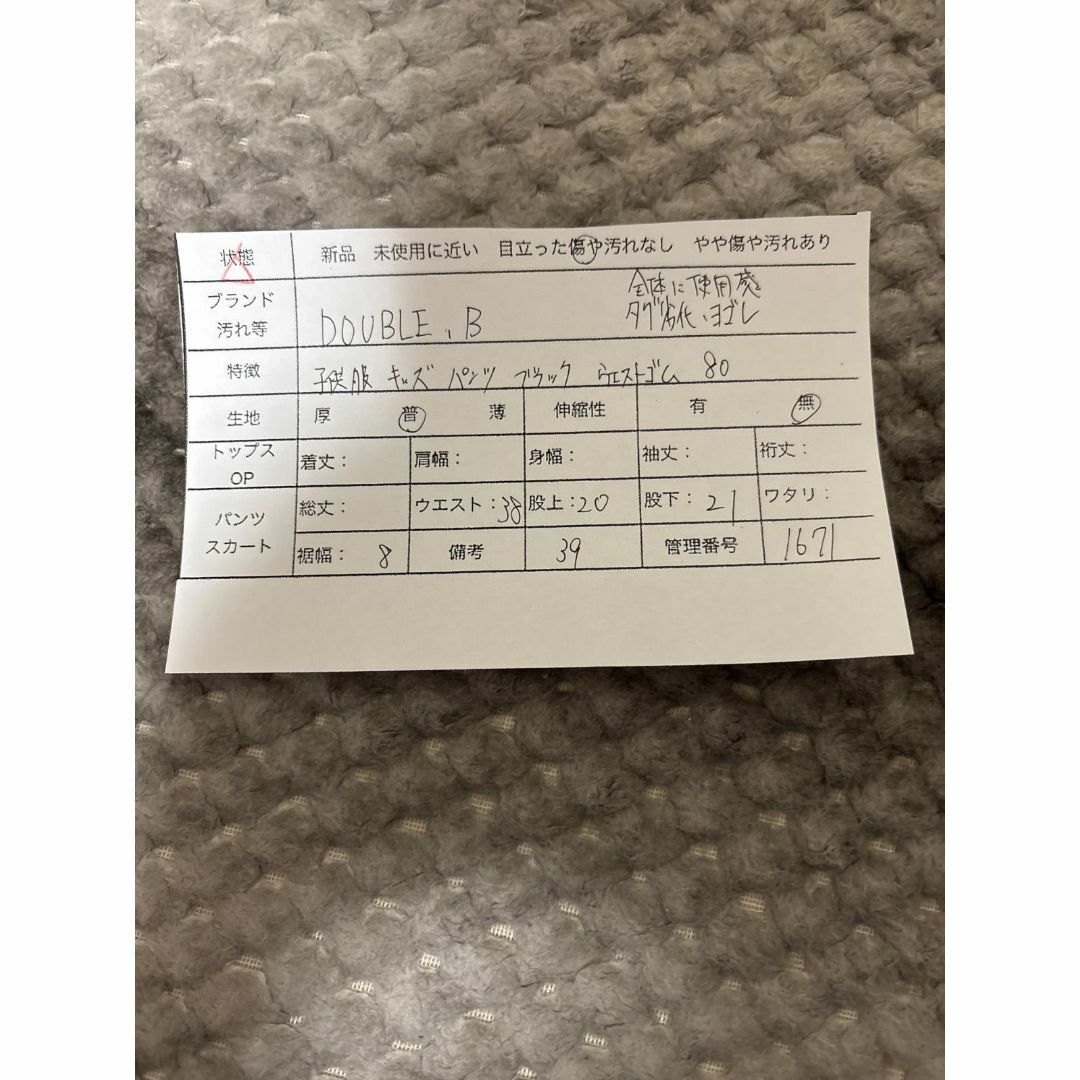 状態 新品 未使用に近い 目立った傷や汚れなし やや傷や汚れあり
ブランド 汚れ等 DOUBLE.B 全体に使用感
タグ劣化、ヨゴレ
特徴 子供服 キッズ パンツ ブラック ウエストゴム 80
生地 厚 普 薄 伸縮性 有 無
トップス OP 着丈: 肩幅: 身幅: 袖丈: 裄丈:
パンツ スカート 総丈: ウエスト:38 股上:20 股下:21 ワタリ:
裾幅: 8 備考 39 管理番号 1671